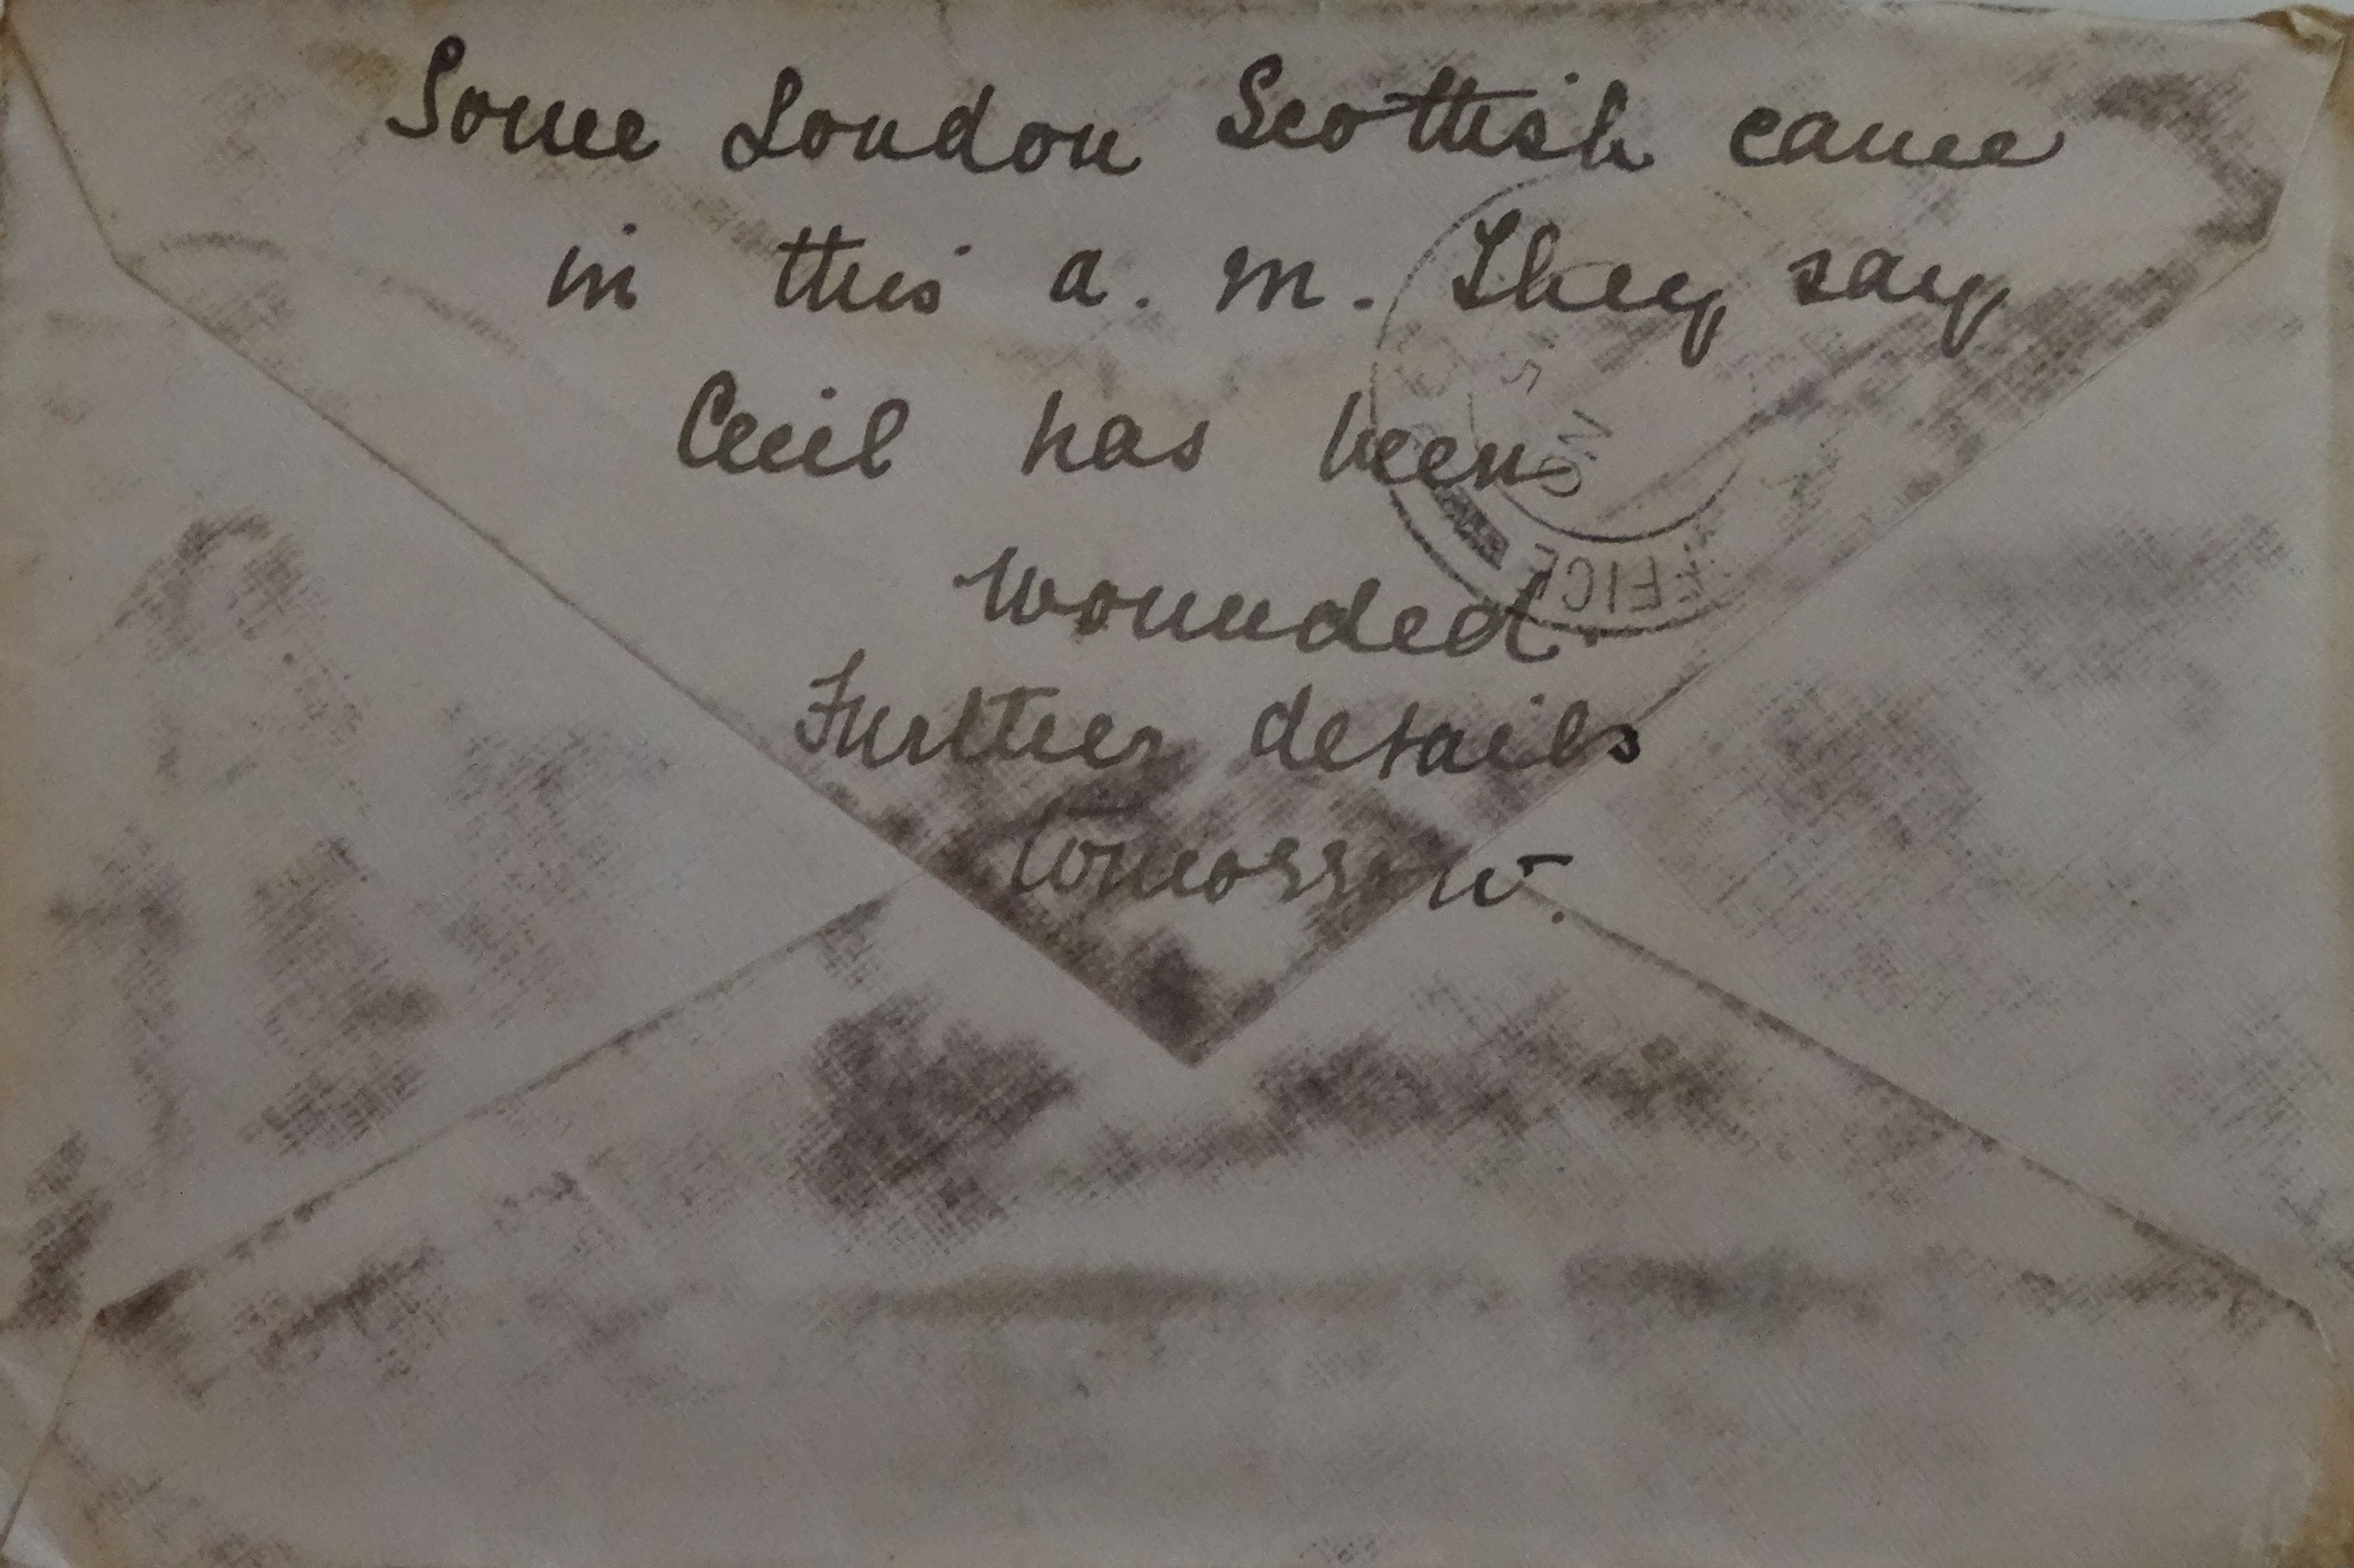 Some London Scottish came
in this a. m. They say
Cecil has been
wounded.
Further details
tomorrow.
FFICE
NO
5